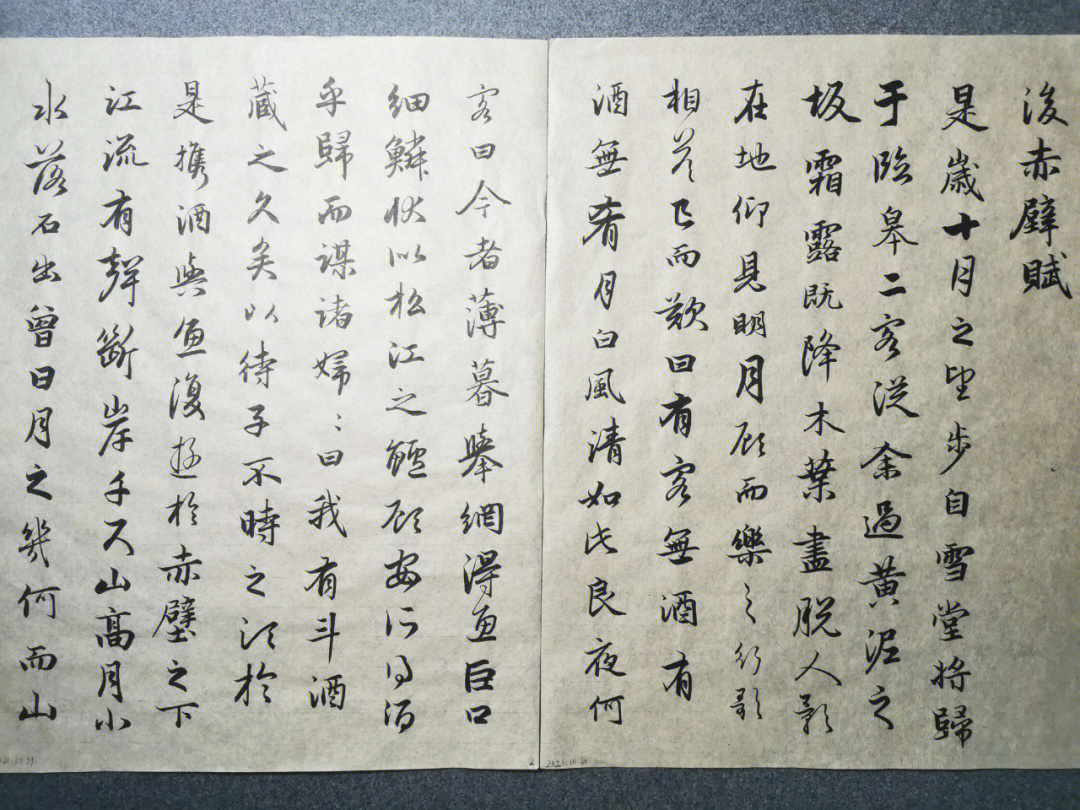 後赤壁賦
是歲十月之望步自雪堂將歸
于臨皋二客從余過黃泥之
坂霜露既降木葉盡脫人影
在地仰見明月顧而樂之行歌
相答已而歎曰有客無酒有
酒無肴月白風清如此良夜何
客曰今者薄暮舉網得魚巨口
細鱗狀似松江之鱸顧安所得酒
乎歸而謀諸婦〻曰我有斗酒
藏之久矣以待子不時之須於
是携酒與魚復遊於赤壁之下
江流有聲斷岸千尺山高月小
水落石出曾日月之幾何而山